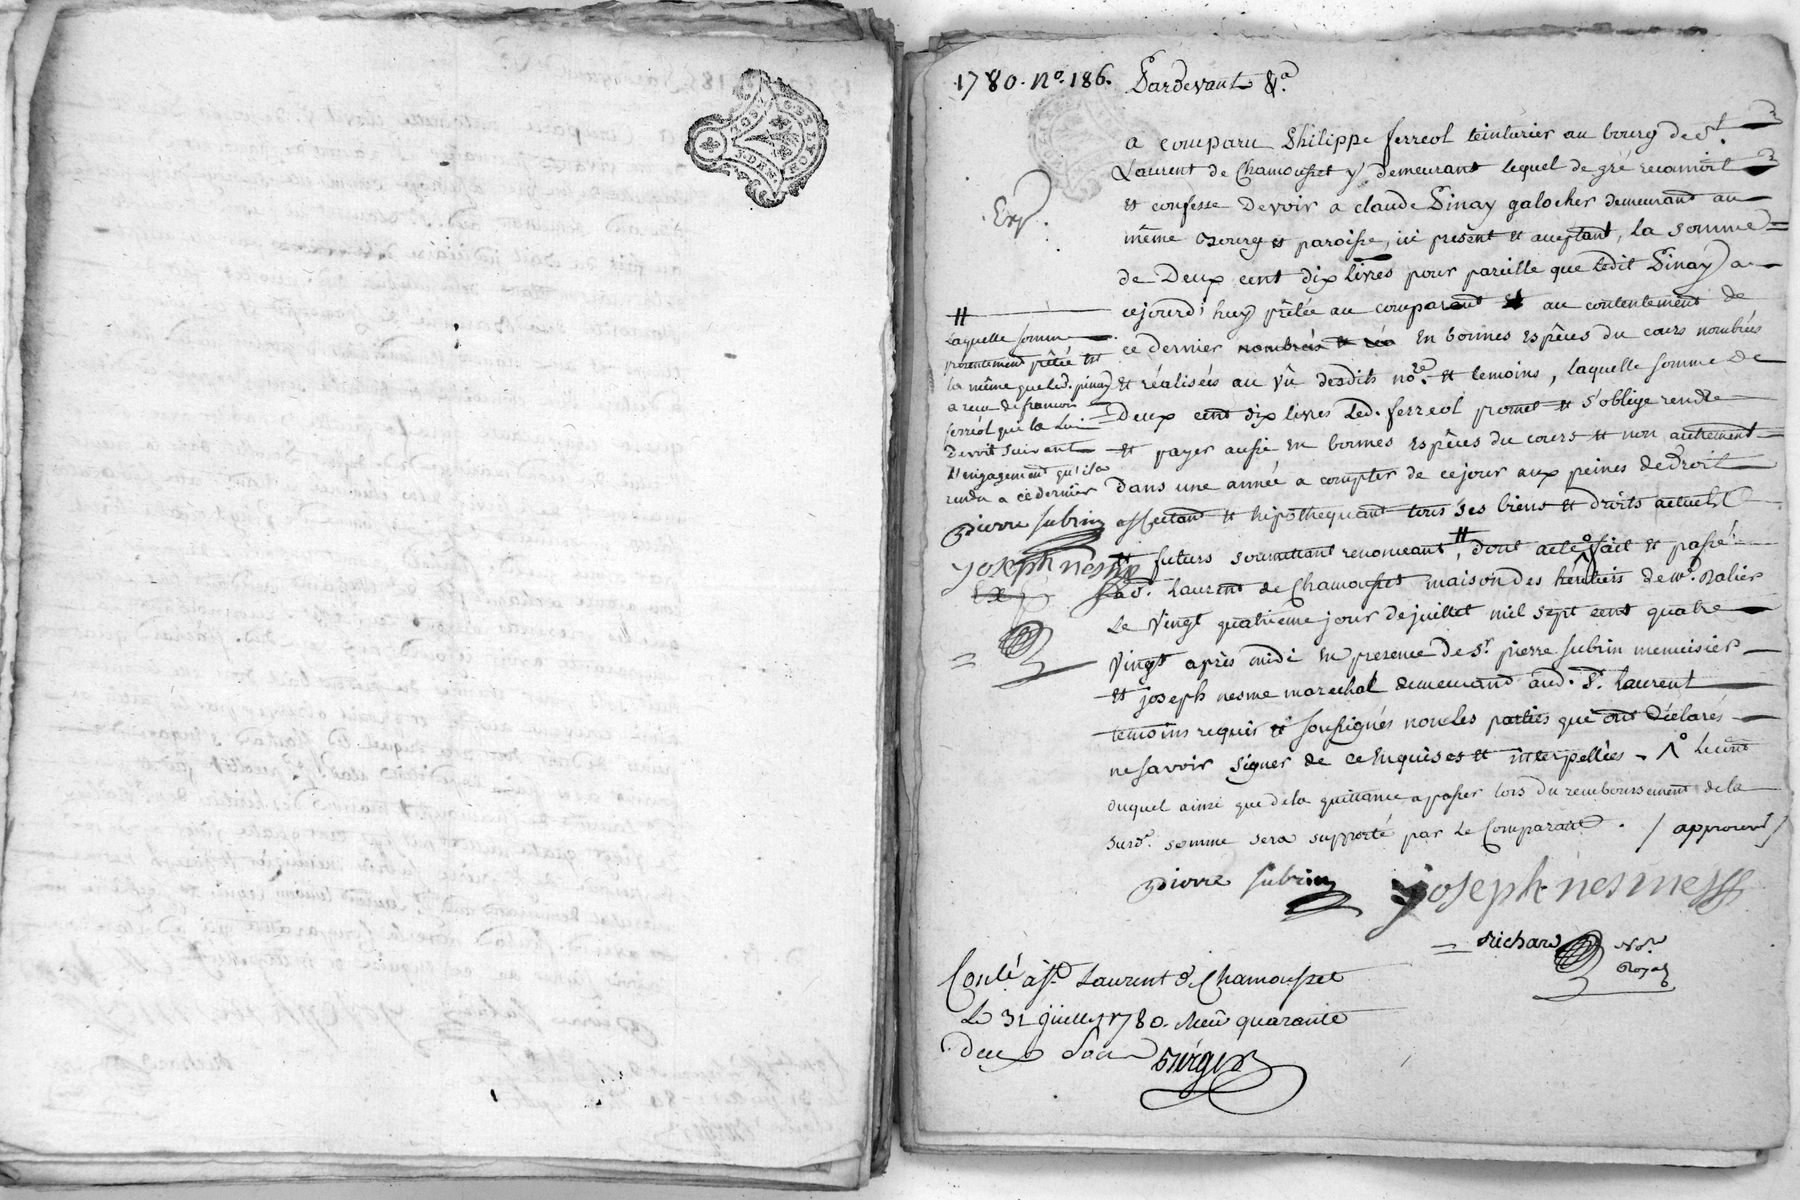 1780. No. 186. Pardevant &a.
a comparu Philippe ferreol teinturier au bourg de St.
Laurent de Chamousset y demeurant lequel de gré reconnoit
et confesse devoir a claude Pinay galocher demeurand au
même bourg et paroisse, ici présent et acceptant, la somme
de Deux cent dix livres pour pareille que ledit Pinay a
cejourd'huy prêtée au comparant au contentement de
ce dernier nombrés et en bonnes Espêces du cours nombrées
et réalisées au vû desdits nore. et temoins, laquelle somme de
Deux cent dix livres Led. ferreol promet et s'oblige rendre
et payer aussi en bonnes espêces du cours et non autrement
Dans une année a compter de cejour aux peines de droit
affectand et hipothequant tous ses biens et droits actuels
et futurs soumettant renoncant #, dont acte fait et passé
a St. Laurent de Chamousset maison des héritiers de Mr. Ralier
Le Vingt quatrieme jour de juillet mil sept cent quatre
Vingt après midi en presence de Sr. pierre subrin menuisier
et joseph nesme marechal demeurand aud. St. Laurent
temoins requis et soussignés non les parties qui ont déclarés
ne savoir signer de ce enquises et interpellées - Λ° Le cout
duquel ainsi que de la quittance a passer lors du remboursement de la
susd. somme sera supporté par Le Comparant. / approuvé /
Exp.
#
Laquelle somme
presentement prêtée est
la même que led. pinay
a recu de francois
ferréol qui la lui
devoit suivant
L'engagement qu'il a
rendu a ce dernier
pierre subrin
joseph nesme
Ex
pierre subrin joseph nesme
Richard Nore.
Royal
Conlé à St. Laurent d. Chamousset
Le 31 juillet 1780. Reçu quarante
deux